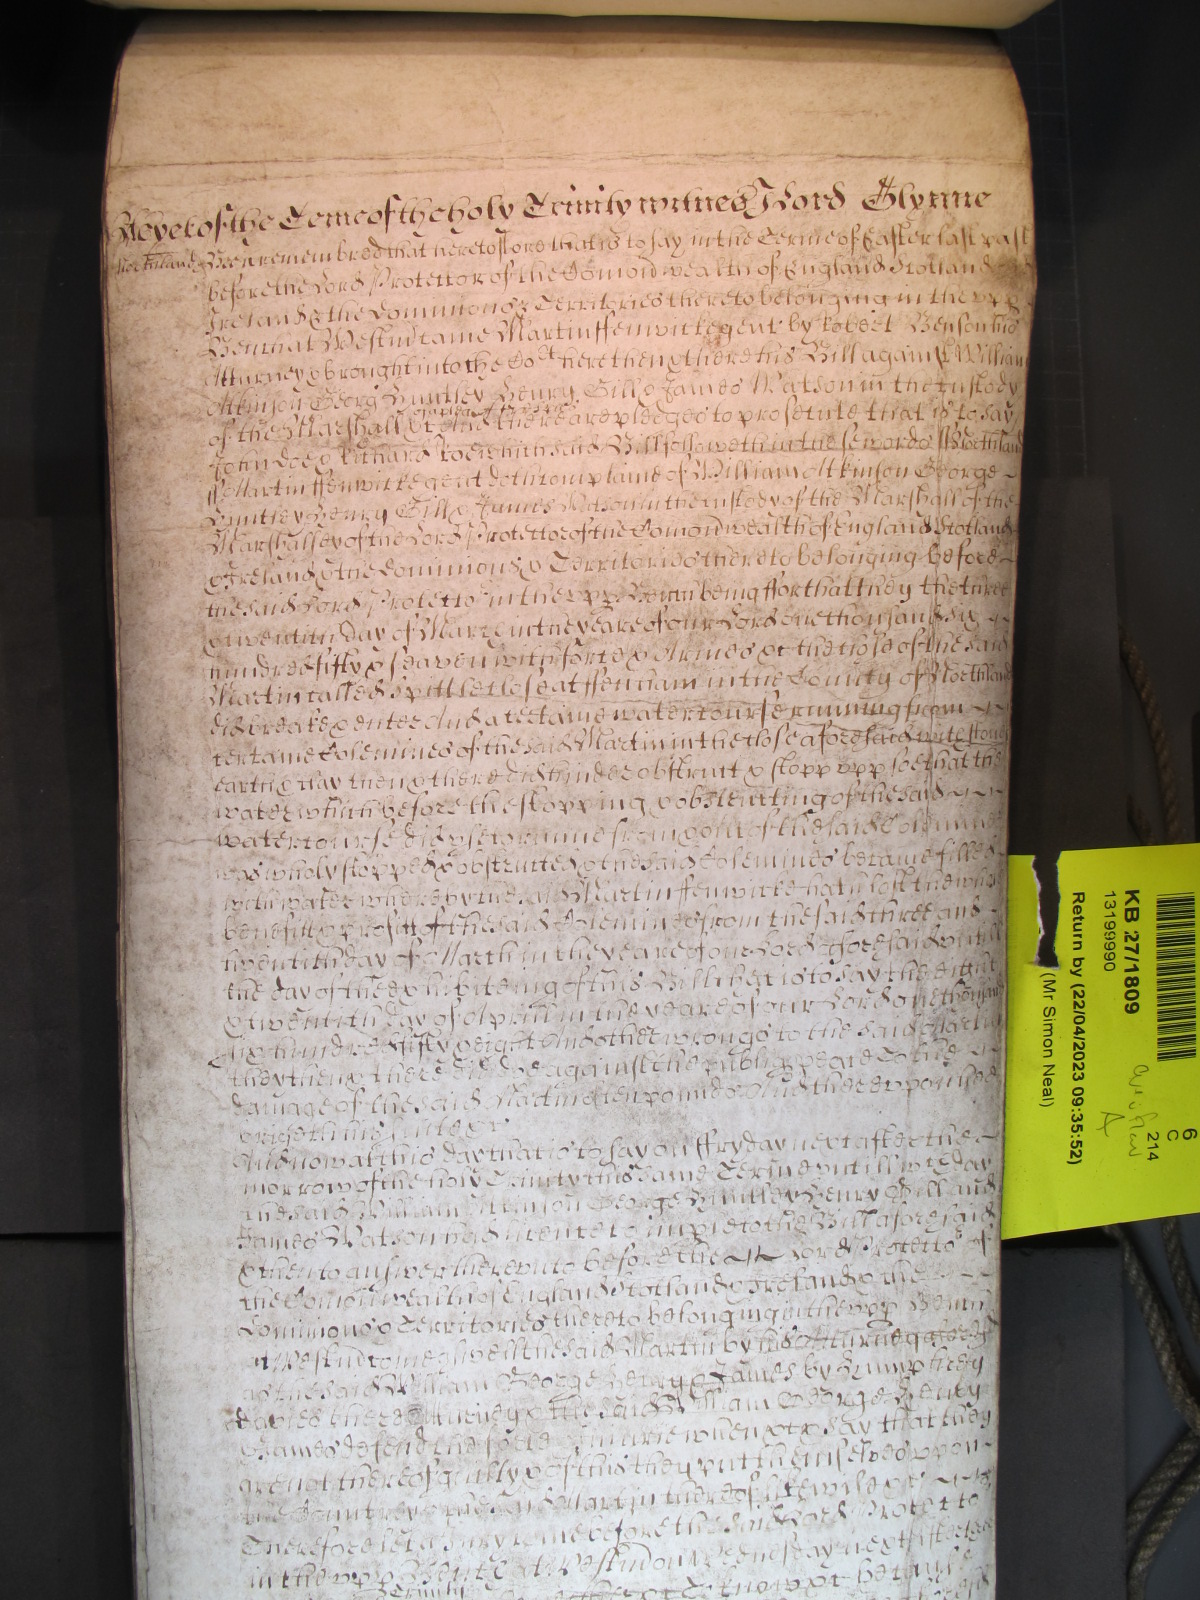 Yet of the Terme of the holy Trinity witnes J Lord Glynne
Northland Bee it remembred that heretofore that is to say in the Terme of Easter last past
before the Lord Protector of the Comonwealth of England Scotland
Ireland & the Dominions & Territories thereto belonging in the upp
Bench at Westm came Martin ffenwicke gent by Robert Benson his
Atturney & brought into the Cort here then & there his Bill against William
Atkinson Georg Huntley Henry Gill & James Watson in the custody
of the Marshall &c And there are pledges to prosecute that is to say
John Doe & Richard Roe which said Bill followeth in these words Northland
ss Martin ffenwicke gent doth complaine of William Atkinson George
Huntley Henry Gill & James Watson in the custody of the Marshall of the
Marshalsey of the Lord Protector of the Comonwealth of England Scotland
& Ireland & the Dominions & Territories thereto belonging before
the said Lord Protector in the upp Bench being ffor that they the three
& twentith day of March in the yeare of our Lord one thousand six
hundred fifty & seaven with force & Armes &c the close of the said
Martin called Spittle close at ffenham in the County of Northland
did breake & enter And a certaine watercourse running from
certaine Colemines of the said Martin in the close aforesaid with stones
earth & clay then & there did hinder obstruct & stopp upp soe that the
water which before the stopping & obstructing of the said
watercourse did use to runne from & out of the said Colemines
was wholy stopped & obstructed & the said Colemines became filled
with water whereby the said Martin ffenwicke hath lost the whole
benefitt & profitt of the said Colemines from the said three and
twentith day of March in the yeare of our Lord aforesaid untill
the day of the exhibiteing of this Bill that is to say the eight
& twentith day of Aprill in the yeare of our Lord one thousand
six hundred fifty & eight And other wrongs to the said Martin
they then & there did doe against the publiq peace To the
damage of the said Martin ten pounds And thereupon hee
bringeth his suite &c
And now at this day that is to say on ffryday next after the
morrow of the holy Trinity this same Terme untill wch day
the said William Atkinson George Huntley Henry Gill and
James Watson had licence to imparle to the Bill aforesaid
& then to answer thereunto before the Lord Protector of
the Comonwealth of England Scotland & Ireland & the
Dominions & Territories thereto belonging in the upp Bench
at Westm come as well the said Martin by his Atturney aforesaid
as the said William George Henry & James by Humphrey
Davies there Atturney & the said William George Henry
& James defend the force & injurie when &c & say that they
are not thereof guilty & of this they put themselves upon
the Countrey & the said Martin thereof likewise &c
Therefore let a Jury come before the said Lord Protector
in the upp Bench at Westm on Wednesday next after
Trinity
KB 27/1809
13199990
Return by (22/04/2023 09:35:52)
(Mr Simon Neal)
6
C
214
A